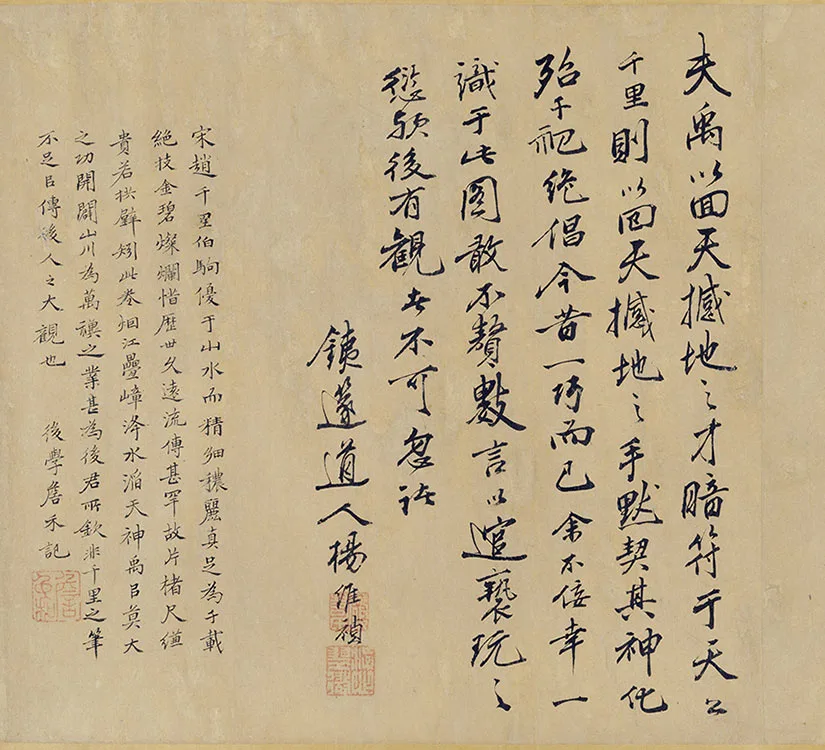 夫禹以回天撼地之才暗符于天公
千里則以回天撼地之手默契其神化
殆千祀絶倡今昔一時而已余不佞幸一
識于此圖敢不贅數言以逭褻玩之
愆願後有觀者不可忽諸
鐵篴道人楊維禎
宋趙千里伯駒優于山水而精細穠麗真足為千載
絕技金碧燦爛惜歷世久遠流傳甚罕故片楮尺縑
貴若拱璧矧此卷烟江疊嶂洚水滔天神禹以莫大
之功開闢山川為萬禩之業甚為後君所欽非千里之筆
不足以傳後人之大觀也 後學詹禾記